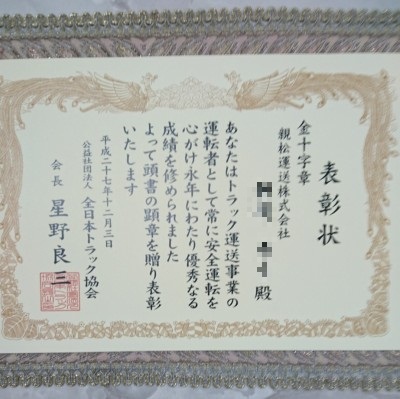 表彰状
金十字章
親松運送株式会社
殿
あなたはトラック運送事業の
運転者として常に安全運転を
心がけ永年にわたり優秀なる
成績を修められました
よって頭書の顕章を贈り表彰
いたします
平成二十七年十二月三日
公益社団法人 全日本トラック協会
会長 星野良三